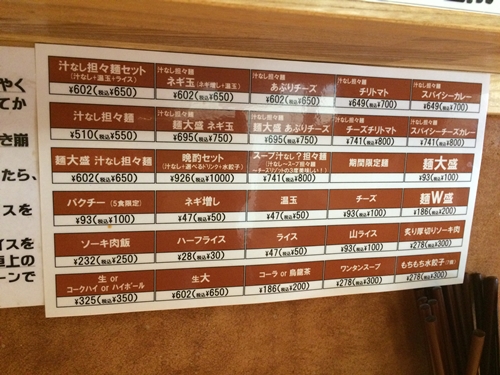 汁なし担々麺セット
(汁なし+温玉+ライス)
¥602(税込¥650)
汁なし担々麺
ネギ玉(ネギ増し+温玉)
¥602(税込¥650)
汁なし担々麺
あぶりチーズ
¥602(税込¥650)
汁なし担々麺
チリトマト
¥649(税込¥700)
汁なし担々麺
スパイシーカレー
¥649(税込¥700)
汁なし担々麺
¥510(税込¥550)
汁なし担々麺
麺大盛 ネギ玉
¥695(税込¥750)
汁なし担々麺
麺大盛 あぶりチーズ
¥695(税込¥750)
汁なし担々麺
チーズチリトマト
¥741(税込¥800)
汁なし担々麺
スパイシーチーズカレー
¥741(税込¥800)
麺大盛 汁なし担々麺
¥602(税込¥650)
晩酌セット
(汁なし+選べるドリンク+水餃子)
¥926(税込¥1000)
スープ汁なし?担々麺
(汁なし→スープ担々麺
→チーズリゾットの3度美味しい!)
¥741(税込¥800)
期間限定麺
麺大盛
¥93(税込¥100)
パクチー(5食限定)
¥93(税込¥100)
ネギ増し
¥47(税込¥50)
温玉
¥47(税込¥50)
チーズ
¥93(税込¥100)
麺W盛
¥186(税込¥200)
ソーキ肉飯
¥232(税込¥250)
ハーフライス
¥28(税込¥30)
ライス
¥47(税込¥50)
山ライス
¥93(税込¥100)
炙り厚切りソーキ肉
¥278(税込¥300)
生 or
コークハイ or ハイボール
¥325(税込¥350)
生大
¥602(税込¥650)
コーラ or 烏龍茶
¥186(税込¥200)
ワンタンスープ
¥278(税込¥300)
もちもち水餃子(7個)
¥278(税込¥300)
やく
てか
き崩
たら、
スを
イスを
卓上の
ーンで